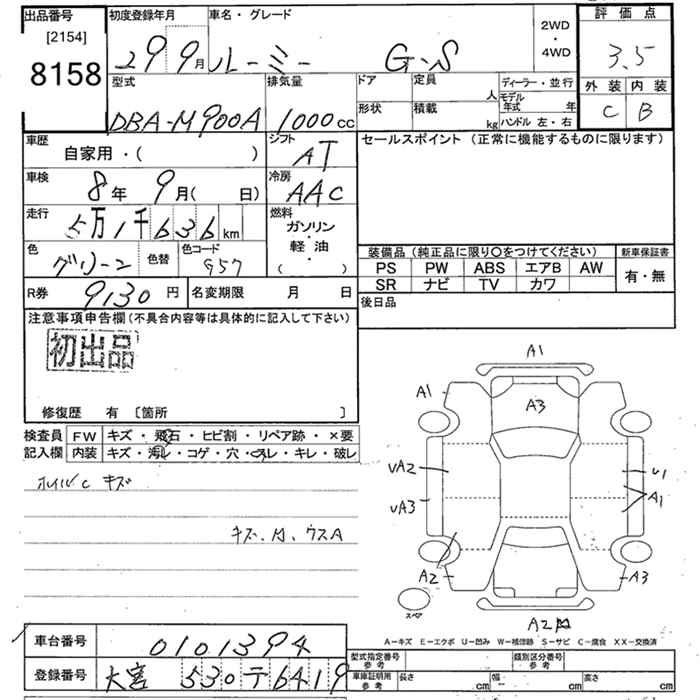 出品番号 初度登録年月 車名・グレード 2WD・4WD 評価点
[2154]
8158 29 9月 ルーミー G-S 3.5
型式 排気量 ドア 定員 人 ディーラー・並行 外装 内装
DBA-M900A 1000cc 形状 積載 kg モデル年式 年 ハンドル 左・右 C B
車歴 自家用・( ) シフト AT セールスポイント (正常に機能するものに限ります)
車検 8年 9月( 日) 冷房 AAC
走行 5万1千636km 燃料 ガソリン・軽・油・( )
色 グリーン 色替 色コード G57
装備品 (純正品に限り〇をつけてください) 新車保証書
PS PW ABS エアB AW 有・無
SR ナビ TV カワ
R券 9130円 名変期限 月 日 後日品
注意事項申告欄(不具合内容等は具体的に記入して下さい)
初出品
修復歴 有 〔箇所 〕
検査員 FW キズ・飛石・ヒビ割・リペア跡・×要
記入欄 内装 キズ・汚レ・コゲ・穴・スレ・キレ・破レ
ホイルC キズ
キズ.凹.ウスA
A1
A1
A3
UA2 U1
UA3 A1
A2 A3
スペア
A2凹
A-キズ E-エクボ U-凹み W-補修跡 S-サビ C-腐食 XX-交換済
車台番号 0101394
型式指定番号 参考 類別区分番号 参考
登録番号 大宮 530 テ 6419
車庫証明用 参考 長さ cm 幅 cm 高さ cm